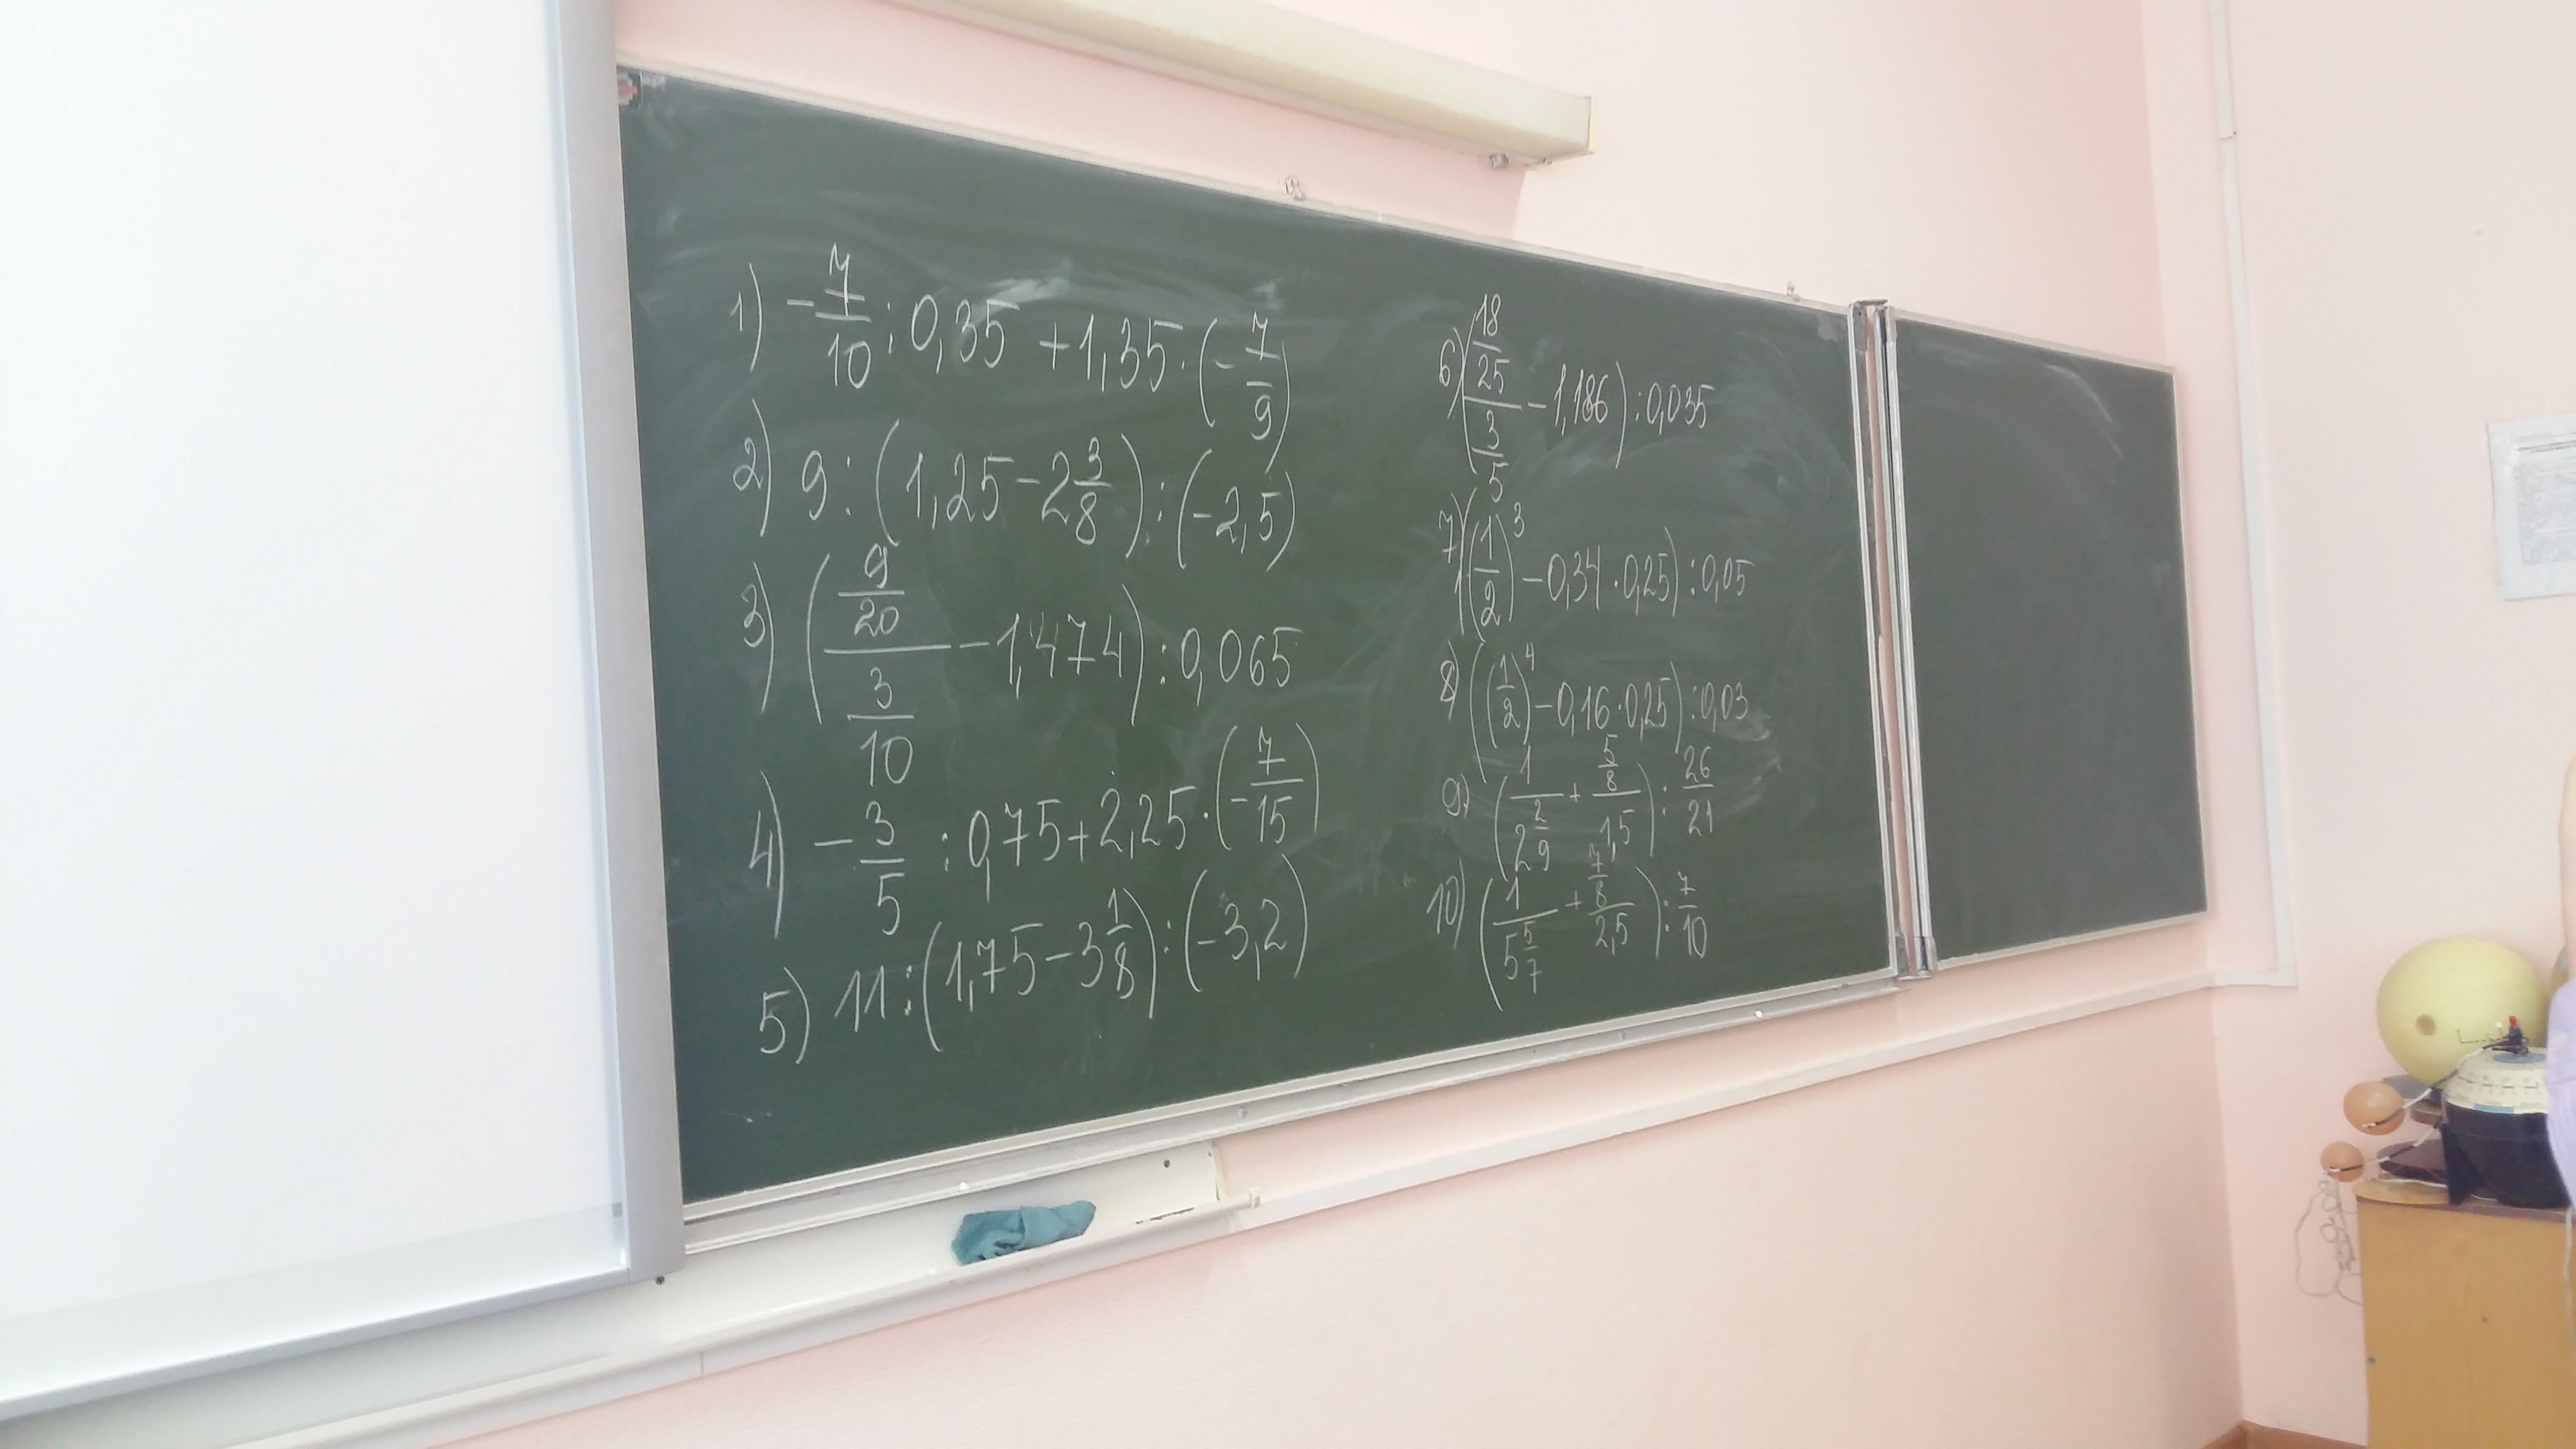 1) -7/10 : 0,35 + 1,35 · (-7/9)
2) 9 : (1,25 - 2 3/8) : (-2,5)
3) ((9/20)/(3/10) - 1,474) : 0,065
4) -3/5 : 0,75 + 2,25 · (-7/15)
5) 11 : (1,75 - 3 1/8) : (-3,2)
6) ((18/25)/(3/5) - 1,186) : 0,035
7) ((1/2)³ - 0,34 · 0,25) : 0,05
8) ((1/2)⁴ - 0,16 · 0,25) : 0,03
9) (1/(2 2/9) + (5/8)/1,5) : 26/21
10) (1/(5 5/7) + (7/8)/2,5) : 7/10